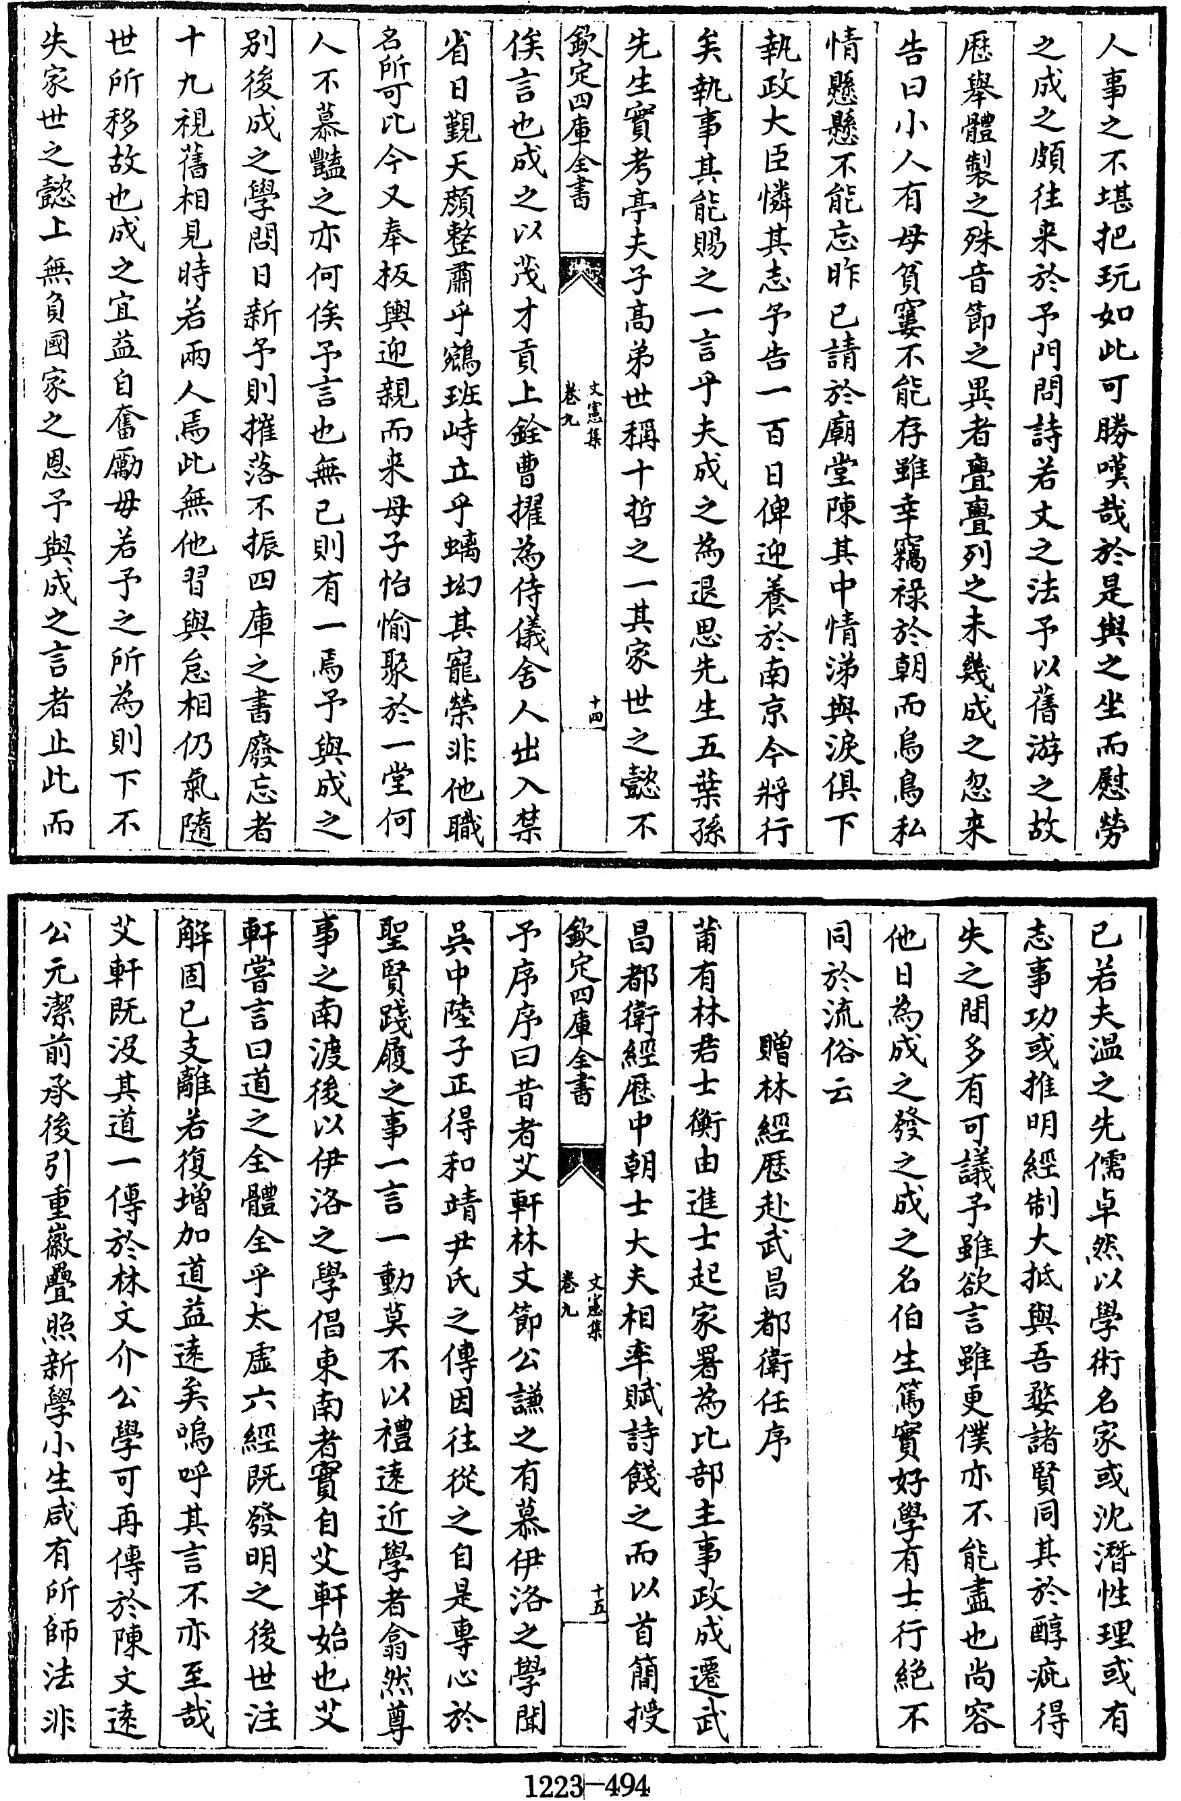 人事之不堪把玩如此可勝嘆哉於是與之坐而慰勞
之成之頗往来於予門問詩若文之法予以舊游之故
歴舉體製之殊音節之異者亹亹列之未幾成之忽来
告曰小人有母貧窶不能存雖幸竊禄於朝而烏鳥私
情懸懸不能忘昨已請於廟堂陳其中情涕與淚俱下
執政大臣憐其志予告一百日俾迎養於南京今將行
矣執事其能賜之一言乎夫成之為退思先生五葉孫
先生實考亭夫子高弟世稱十哲之一其家世之懿不
欽定四庫全書
文憲集
卷九
十四
俟言也成之以茂才貢上銓曹擢為侍儀舍人出入禁
省日覲天顔整肅乎鵷班峙立乎螭坳其寵榮非他職
名所可比今又奉板輿迎親而来母子怡愉聚於一堂何
人不慕豔之亦何俟予言也無已則有一焉予與成之
别後成之學問日新予則摧落不振四庫之書廢忘者
十九視舊相見時若兩人焉此無他習與怠相仍氣隨
世所移故也成之宜益自奮勵毋若予之所為則下不
失家世之懿上無負國家之恩予與成之言者止此而
已若夫温之先儒卓然以學術名家或沈潛性理或有
志事功或推明經制大抵與吾婺諸賢同其於醇疵得
失之間多有可議予雖欲言雖更僕亦不能盡也尚容
他日為成之發之成之名伯生篤實好學有士行絶不
同於流俗云
贈林經歴赴武昌都衛任序
莆有林君士衡由進士起家署為比部主事政成遷武
昌都衛經歴中朝士大夫相率賦詩餞之而以首簡授
欽定四庫全書
文憲集
卷九
十五
予序序曰昔者艾軒林文節公謙之有慕伊洛之學聞
吳中陸子正得和靖尹氏之傳因往從之自是專心於
聖賢踐履之事一言一動莫不以禮逺近學者翕然尊
事之南渡後以伊洛之學倡東南者實自艾軒始也艾
軒嘗言曰道之全體全乎太虚六經既發明之後世注
解固已支離若復增加道益逺矣嗚呼其言不亦至哉
艾軒既没其道一傳於林文介公學可再傳於陳文逺
公元潔前承後引重徽疊照新學小生咸有所師法非
1223-494